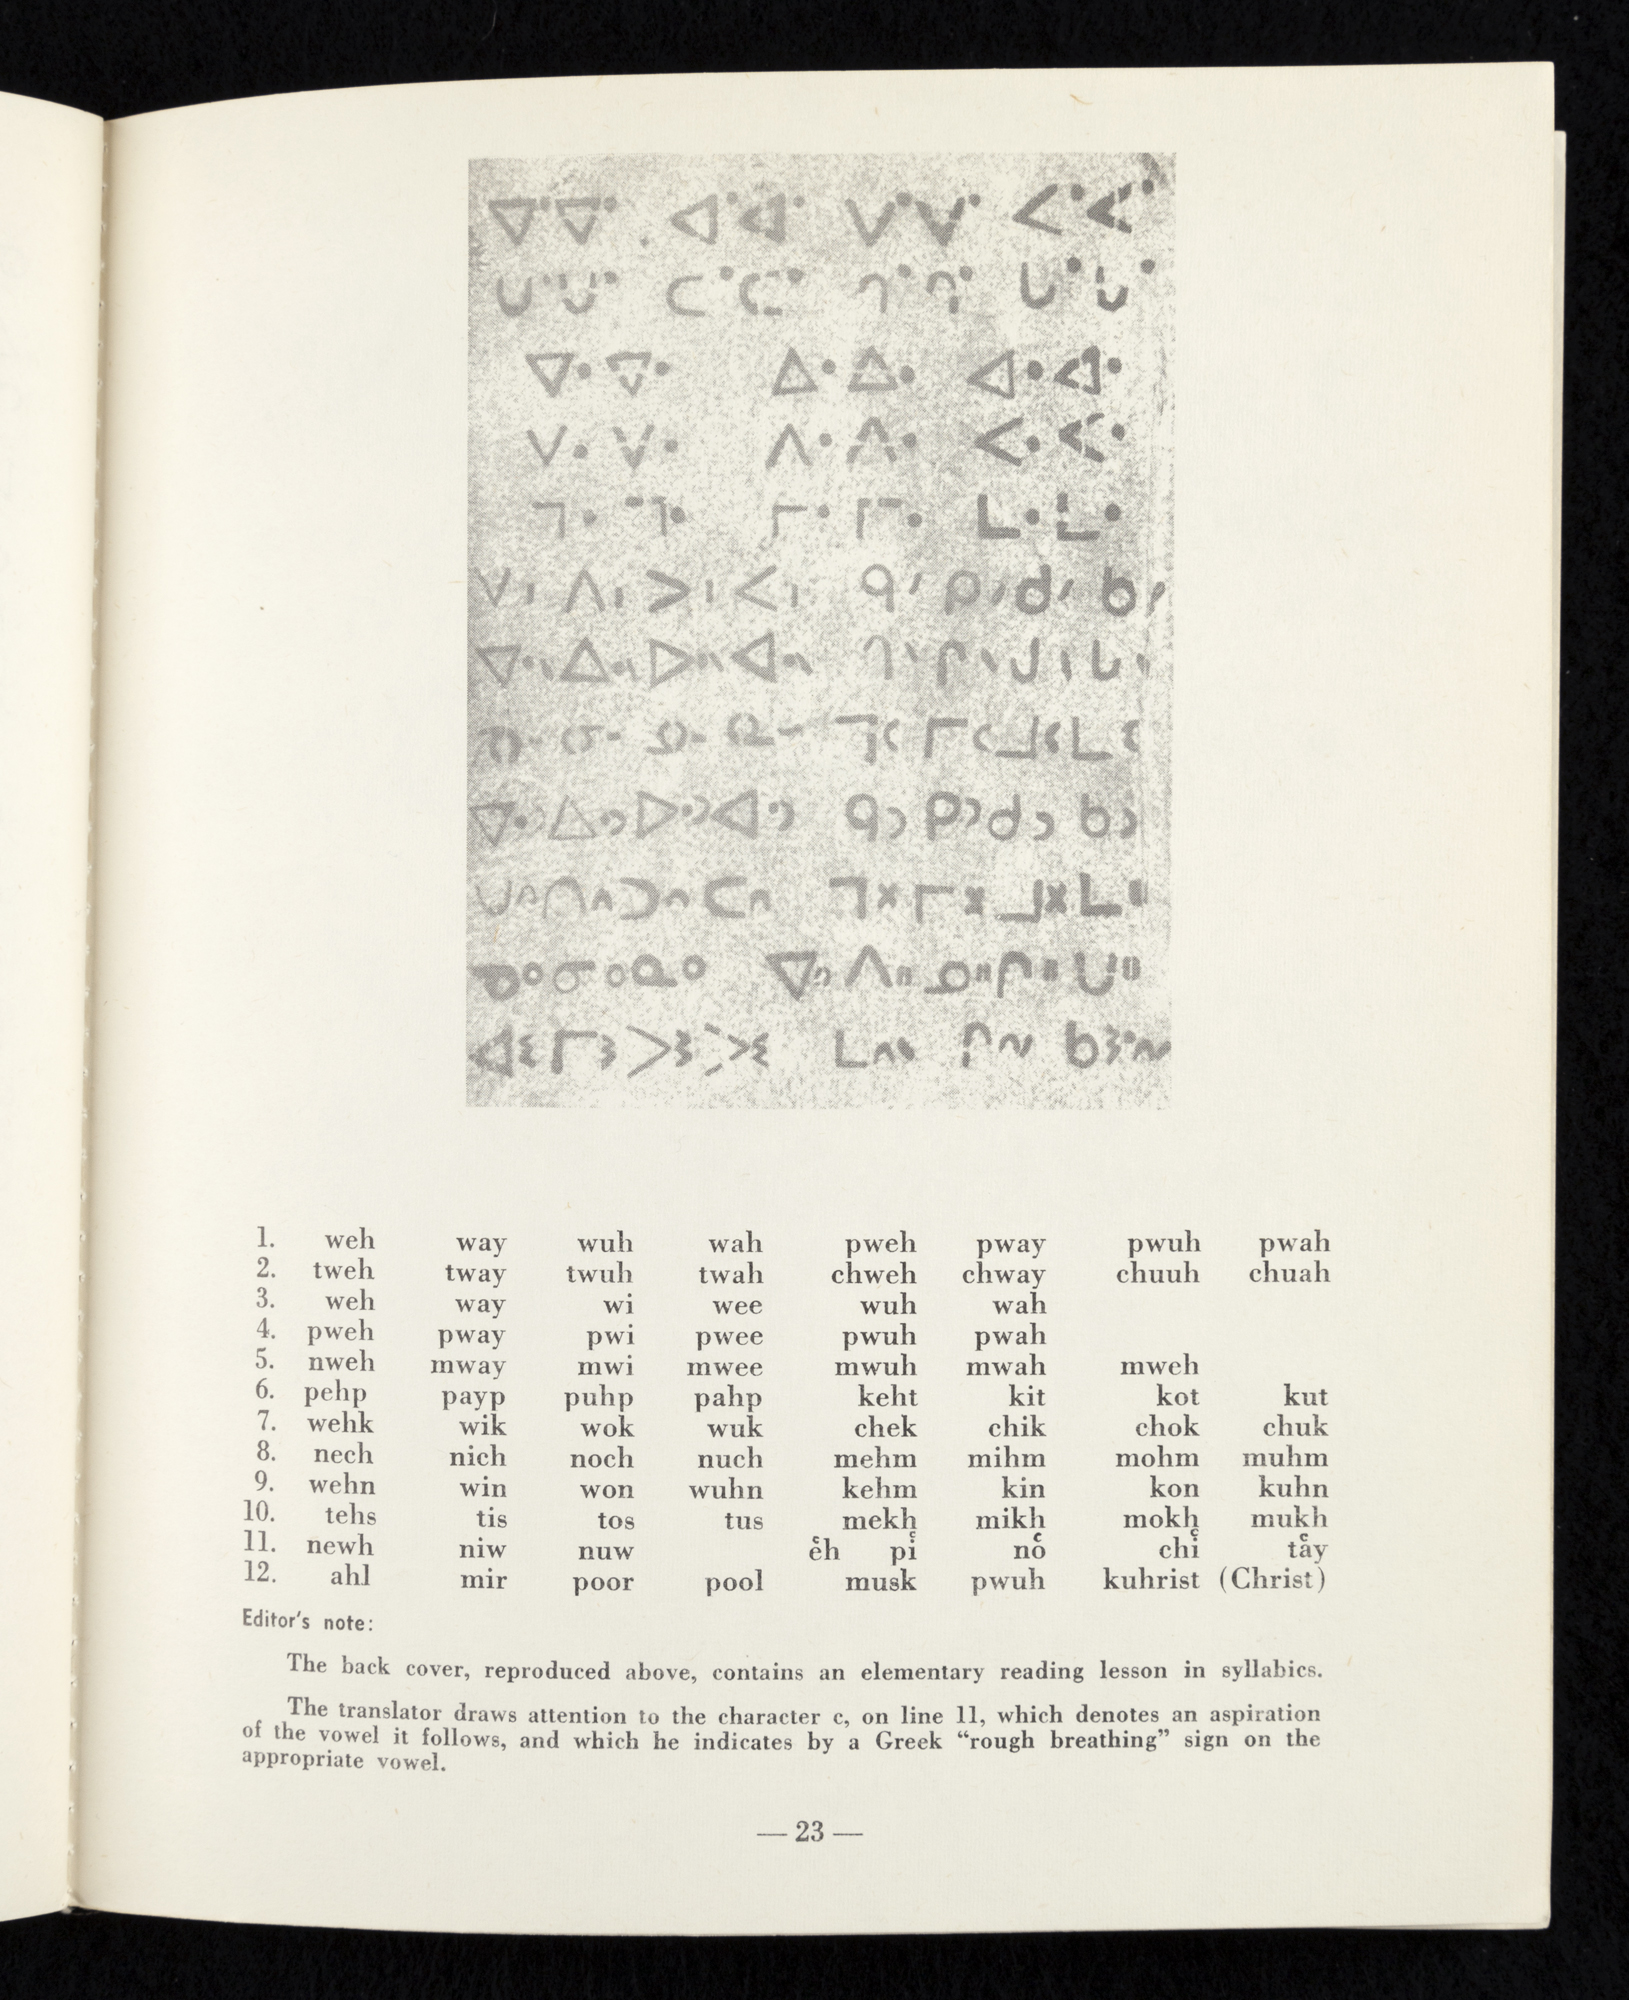 ᐯᑊ ᐱᑊ ᐳᑊ ᐸᑊ ᑫᐟ ᑭᐟ ᑯᐟ ᑲᐟ
ᐁᐧᐠ ᐃᐧᐠ ᐅᐧᐠ ᐊᐧᐠ ᒉᐠ ᒋᐠ ᒍᐠ ᒐᐠ
ᓀᐨ ᓂᐨ ᓄᐨ ᓇᐨ ᒣᒼ ᒥᒼ ᒧᒼ ᒪᒼ
ᐁᐧᐣ ᐃᐧᐣ ᐅᐧᐣ ᐊᐧᐣ ᑫᐣ ᑭᐣ ᑯᐣ ᑲᐣ
ᑌᐢ ᑎᐢ ᑐᐢ ᑕᐢ ᒣᕽ ᒥᕽ ᒧᕽ ᒪᕽ
1. weh way wuh wah pweh pway pwuh pwah
2. tweh tway twuh twah chweh chway chuuh chuah
3. weh way wi wee wuh wah
4. pweh pway pwi pwee pwuh pwah
5. nweh mway mwi mwee mwuh mwah mweh
6. pehp payp puhp pahp keht kit kot kut
7. wehk wik wok wuk chek chik chok chuk
8. nech nich noch nuch mehm mihm mohm muhm
9. wehn win won wuhn kehm kin kon kuhn
10. tehs tis tos tus mekh mikh mokh mukh
11. newh niw nuw e̔h pi̔ no̔ chi̔ ta̔y
12. ahl mir poor pool musk pwuh kuhrist (Christ)
Editor's note:
The back cover, reproduced above, contains an elementary reading lesson in syllabics.
The translator draws attention to the character c, on line 11, which denotes an aspiration
of the vowel it follows, and which he indicates by a Greek “rough breathing” sign on the
appropriate vowel.
— 23 —